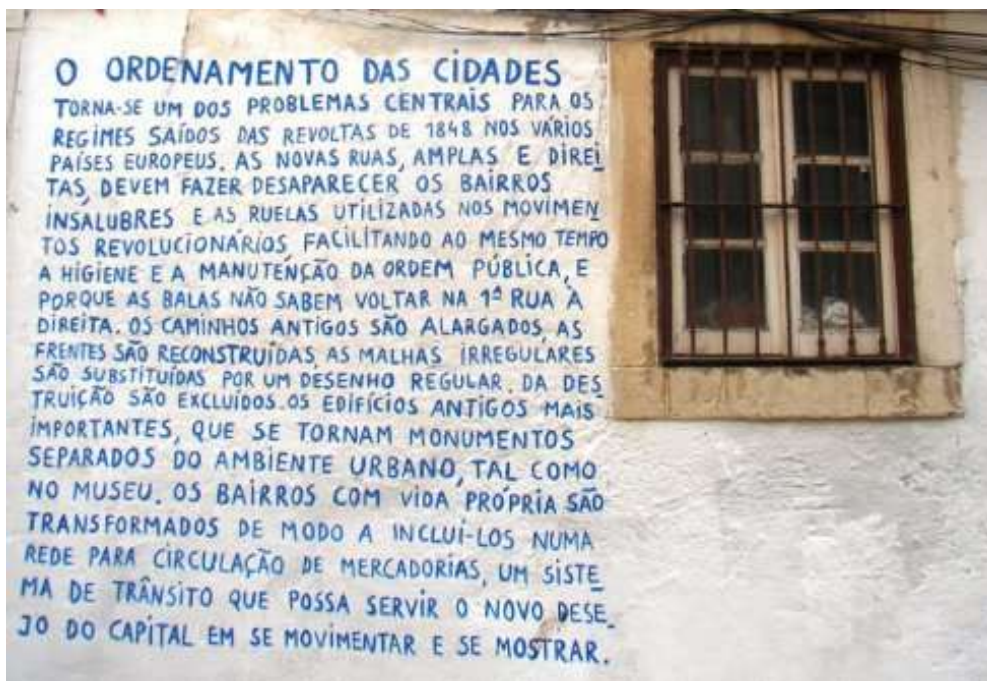 O ORDENAMENTO DAS CIDADES
TORNA-SE UM DOS PROBLEMAS CENTRAIS PARA OS
REGIMES SAÍDOS DAS REVOLTAS DE 1848 NOS VÁRIOS
PAÍSES EUROPEUS. AS NOVAS RUAS, AMPLAS E DIREI_
TAS, DEVEM FAZER DESAPARECER OS BAIRROS
INSALUBRES E AS RUELAS UTILIZADAS NOS MOVIMEN_
TOS REVOLUCIONÁRIOS, FACILITANDO AO MESMO TEMPO
A HIGIENE E A MANUTENÇÃO DA ORDEM PÚBLICA, E
PORQUE AS BALAS NÃO SABEM VOLTAR NA 1ª RUA À
DIREITA. OS CAMINHOS ANTIGOS SÃO ALARGADOS, AS
FRENTES SÃO RECONSTRUÍDAS, AS MALHAS IRREGULARES
SÃO SUBSTITUÍDAS POR UM DESENHO REGULAR. DA DES_
TRUIÇÃO SÃO EXCLUÍDOS OS EDIFÍCIOS ANTIGOS MAIS
IMPORTANTES, QUE SE TORNAM MONUMENTOS
SEPARADOS DO AMBIENTE URBANO, TAL COMO
NO MUSEU. OS BAIRROS COM VIDA PRÓPRIA SÃO
TRANSFORMADOS DE MODO A INCLUÍ-LOS NUMA
REDE PARA CIRCULAÇÃO DE MERCADORIAS, UM SISTE_
MA DE TRÂNSITO QUE POSSA SERVIR O NOVO DESE_
JO DO CAPITAL EM SE MOVIMENTAR E SE MOSTRAR.